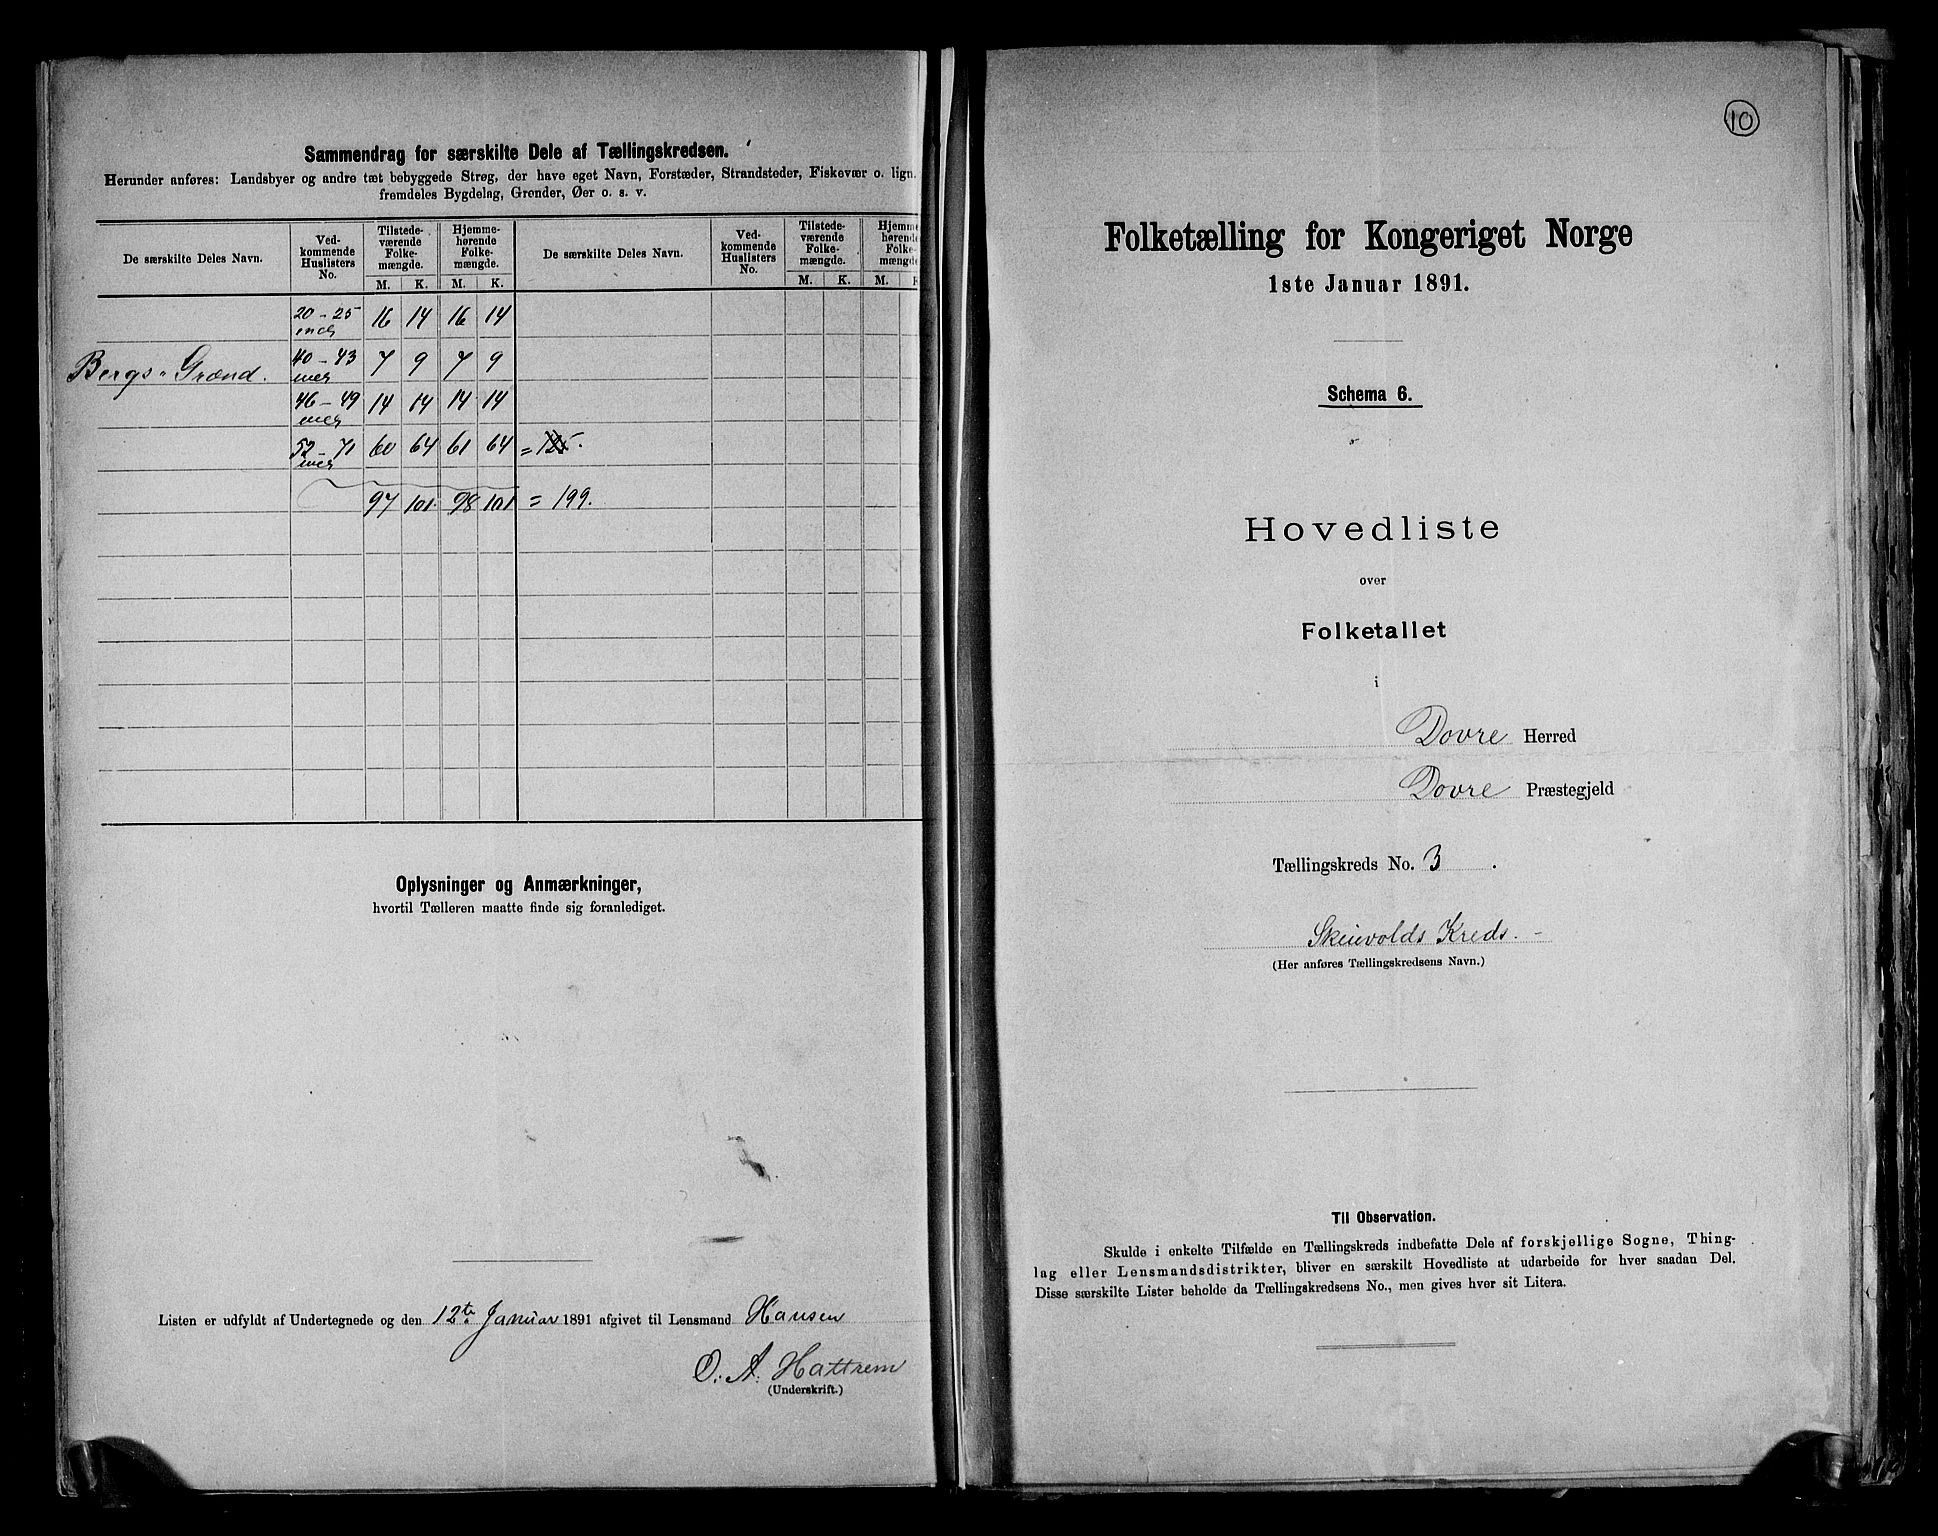 Sammendrag for særskilte Dele af Tællingskredsen.
Herunder anføres: Landsbyer og andre tæt bebyggede Strøg, der have eget Navn, Forstæder, Strandsteder, Fiskevær o. lign.
fremdeles Bygdelag, Grender, Øer o. s. v.
De særskilte Deles Navn. Ved-kommende Huslisters No. Tilstede-værende Folke-mængde. Hjemme-hørende Folke-mængde. De særskilte Deles Navn. Ved-kommende Huslisters No. Tilstede-værende Folke-mængde. Hjemme-hørende Folke-mængde
M. K. M. K. M. K. M.
20 - 25 16 14 16 14
Bergs-Grænd. 40 - 43 7 9 7 9
46 - 49 14 14 14 14
52 - 71 60 64 61 64 = 125.
97 101. 98 101 = 199.
Oplysninger og Anmærkninger,
hvortil Tælleren maatte finde sig foranlediget.
Listen er udfyldt af Undertegnede og den 12te Januar 1891 afgivet til Lensmand Hansen
O. A. Hattrem
(Underskrift.)
10
Folketælling for Kongeriget Norge
1ste Januar 1891.
Schema 6.
Hovedliste
over
Folketallet
i
Dovre Herred
Dovre Præstegjeld
Tællingskreds No. 3.
Kreds.
(Her anføres Tællingskredsens Navn.)
Til Observation.
Skulde i enkelte Tilfælde en Tællingskreds indbefatte Dele af forskjellige Sogne, Thing-
lag eller Lensmandsdistrikter, bliver en særskilt Hovedliste at udarbeide for hver saadan Del.
Disse særskilte Lister beholde da Tællingskredsens No., men gives hver sit Litera.